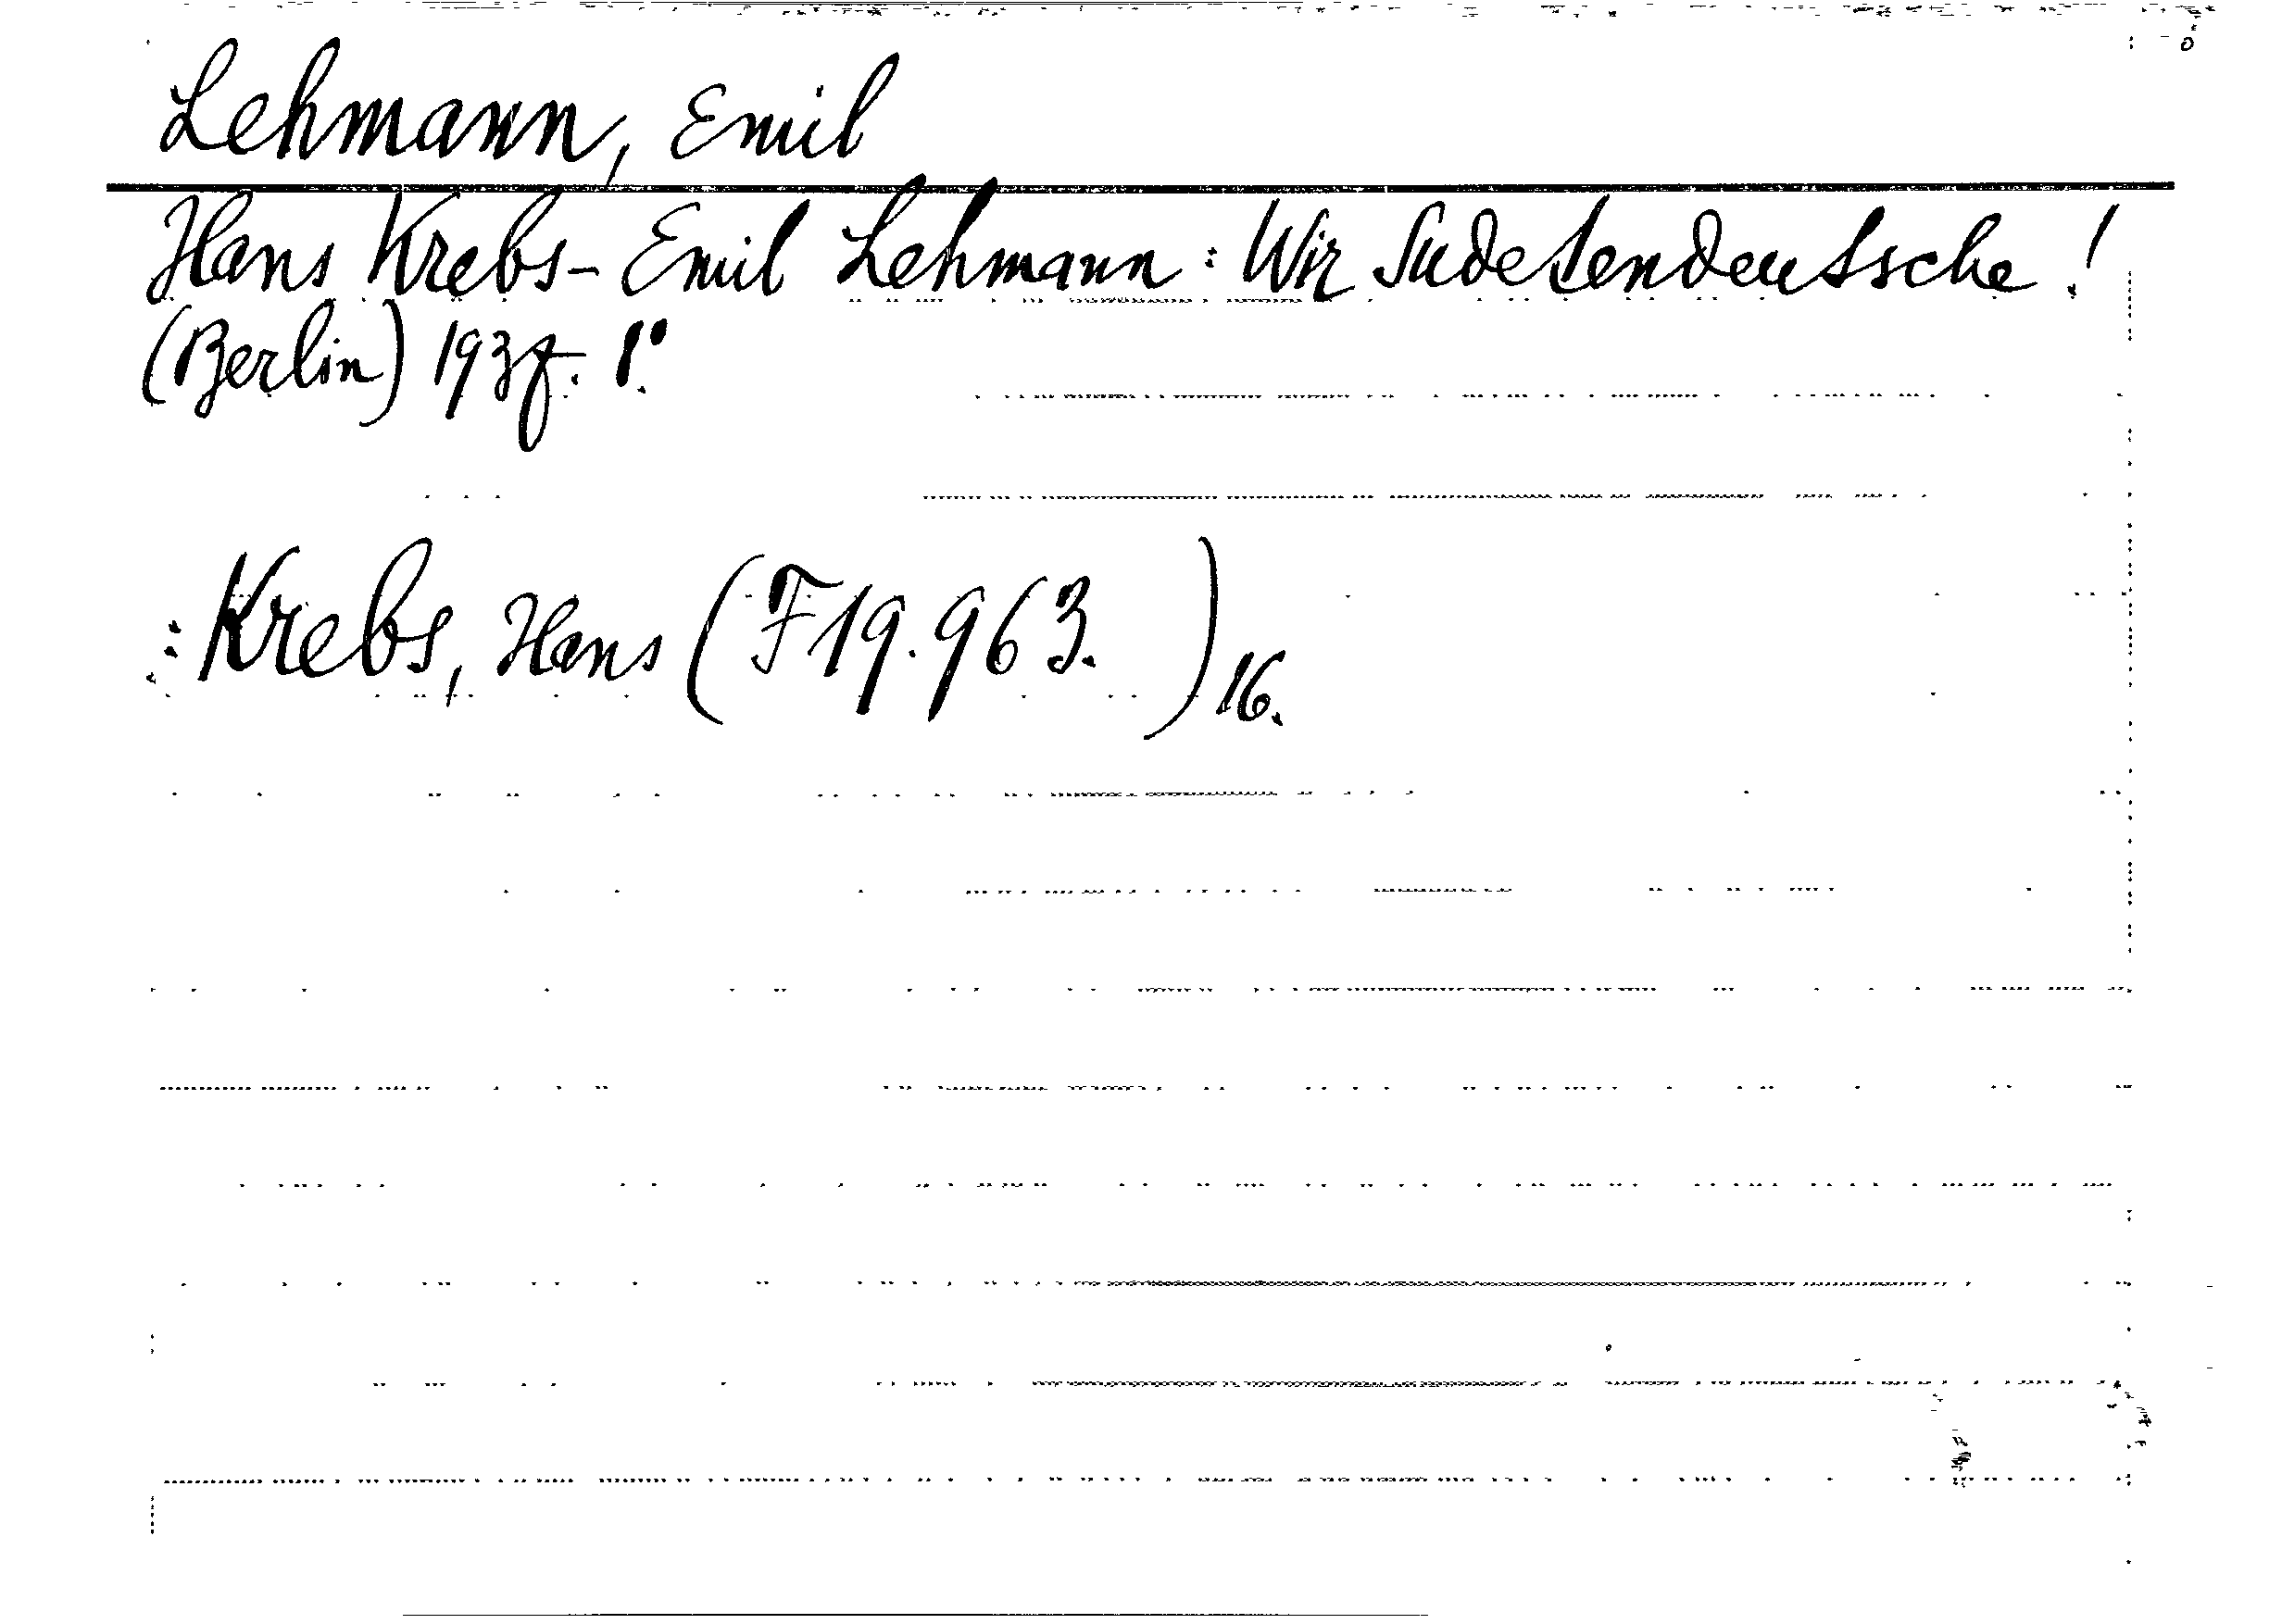 Lehmann, Emil
Hans Krebs - Emil Lehmann : Wir Sudetendeutsche!
(Berlin) 1937. 8°.
: Krebs, Hans (F19.963. )16.